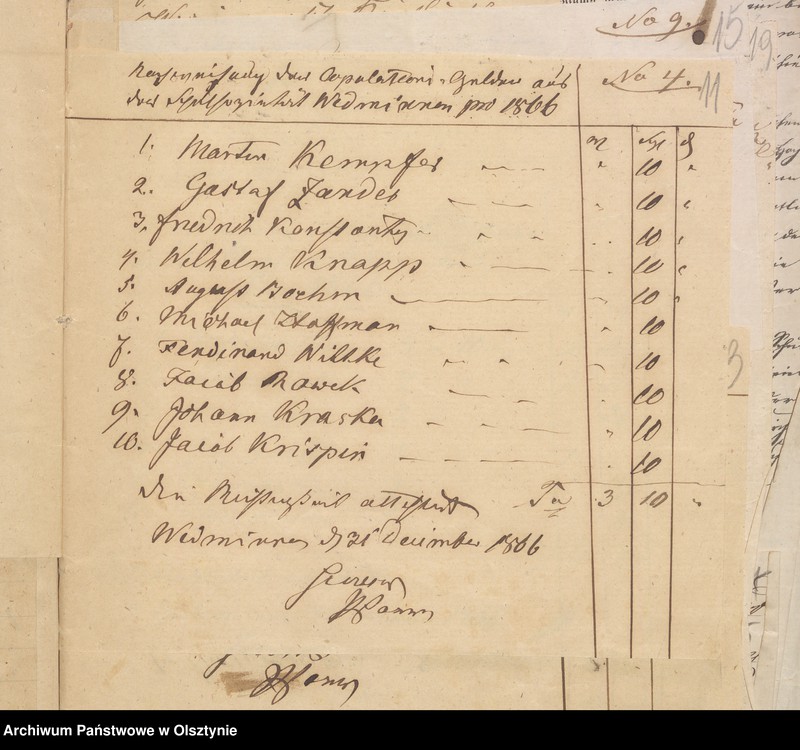 No 9. 15 19
Nachweisung der Copulations-Gelder aus
der Schulsozietät Widminnen pro 1866
No 4. 11
rt Sgr d
1. Martin Kempfer " 10 "
2. Gustaf Zander " 10 "
3. Friedrich Konstanty " 10 "
4. Wilhelm Knapp " 10 "
5. August Boehm " 10 "
6. Michael Hoffman " 10
7. Ferdinand Wilke " 10
8. Jacob Rawek 10
9. Johann Kraska " 10
10. Jacob Krispin " 10
Die Richtigkeit attestirt Sa 3 10 "
Widminnen d 31 December 1866
3
Archiwum Państwowe w Olsztynie